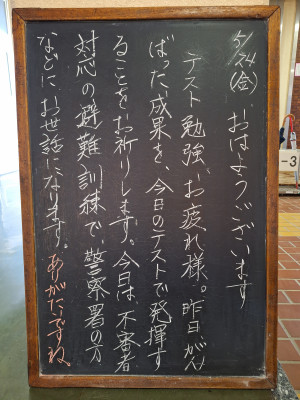 5/24(金) おはようございます
テスト勉強、お疲れ様。昨日がん
ばった成果を、今日のテストで発揮す
ることをお祈りします。今日は不審者
対応の避難訓練で、警察署の方
などにお世話になります。ありがたいですね。
-3